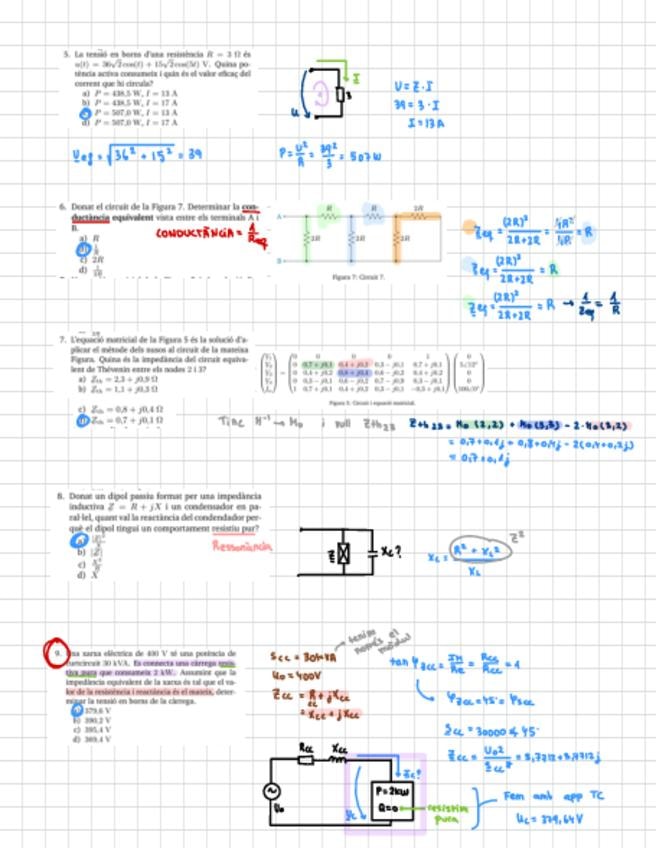 5. La tensió en borns d'una resistència R = 3 Ω és
u(t) = 36√2cos(t) + 15√2cos(5t) V. Quina po-
tència activa consumeix i quin és el valor eficaç del
corrent que hi circula?
a) P = 438,5 W, I = 13 A
b) P = 438,5 W, I = 17 A
c) P = 507,0 W, I = 13 A
d) P = 507,0 W, I = 17 A
I
3
u
U = Z · I
39 = 3 · I
I = 13A
Uef = √36² + 15² = 39
P = U²/R = 39²/3 = 507W
6. Donat el circuit de la Figura 7. Determinar la con-
ductància equivalent vista entre els terminals A i
B.
a) R
c) 2R
CONDUCTÀNCIA = 1/Req
A
R
R
2R
2R
2R
2R
B
Figura 7: Circuit 7.
Zeq = (2R)²/2R+2R = 4R²/4R = R
Zeq = (2R)²/2R+2R = R
Zeq = (2R)²/2R+2R = R → 1/Zeq = 1/R
7. L'equació matricial de la Figura 5 és la solució d'a-
plicar el mètode dels nusos al circuit de la mateixa
Figura. Quina és la impedància del circuit equiva-
lent de Thévenin entre els nodes 2 i 3?
a) Zth = 2,3 + j0,9 Ω
b) Zth = 1,1 + j0,3 Ω
c) Zth = 0,8 + j0,4 Ω
d) Zth = 0,7 + j0,1 Ω
Figura 5: Circuit i equació matricial.
Tinc
i vull Zth23
Zth 23 = Mo (2,2) + Mo (3,3) - 2·Mo (3,2)
= 0,7+0,1j + 0,8+0,4j - 2(0,4+0,2j)
= 0,7+0,1j
8. Donat un dipol passiu format per una impedància
inductiva Z = R + jX i un condensador en pa-
ral·lel, quant val la reactància del condendador per-
què el dipol tingui un comportament resistiu pur?
b) |Z|
d) X
Ressonància
Z
Xc?
Xc = R² + XL² / XL
Z²
9. Una xarxa elèctrica de 400 V té una potència de
curtcircuit 30 kVA. Es connecta una càrrega resis-
tiva pura que consumeix 2 kW. Assumint que la
impedància equivalent de la xarxa és tal que el va-
lor de la resistència i reactància és el mateix, deter-
minar la tensió en borns de la càrrega.
a) 379,6 V
b) 390,2 V
c) 395,4 V
d) 369,4 V
Scc = 30kVA
tenim només el mòdul
U0 = 400V
Zcc = Rcc + jXcc
= Xcc + jXcc
tan φzcc = Im/Re = Rcc/Rcc = 1
φzcc = 45° = φscc
Scc = 30000∠45°
Rcc
Xcc
Uo
Uc
P = 2kW
Q = 0
resistiva
pura
Fem amb app TC
Uc = 379,64V